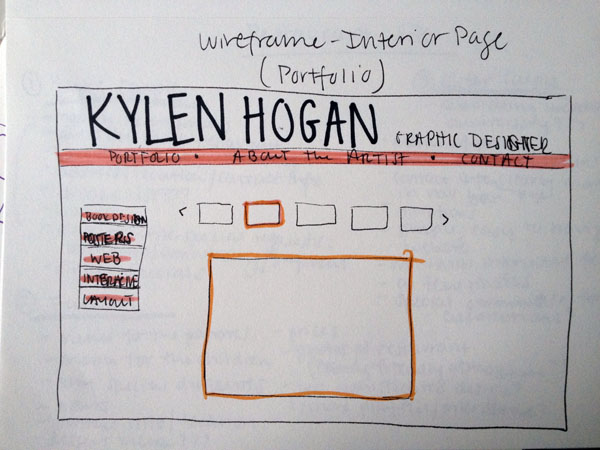 Wireframe - Interior Page
(Portfolio)
KYLEN HOGAN GRAPHIC DESIGNER
PORTFOLIO • ABOUT the ARTIST • CONTACT
BOOK DESIGN
POSTERS
WEB
INTERACTIVE
LAYOUT